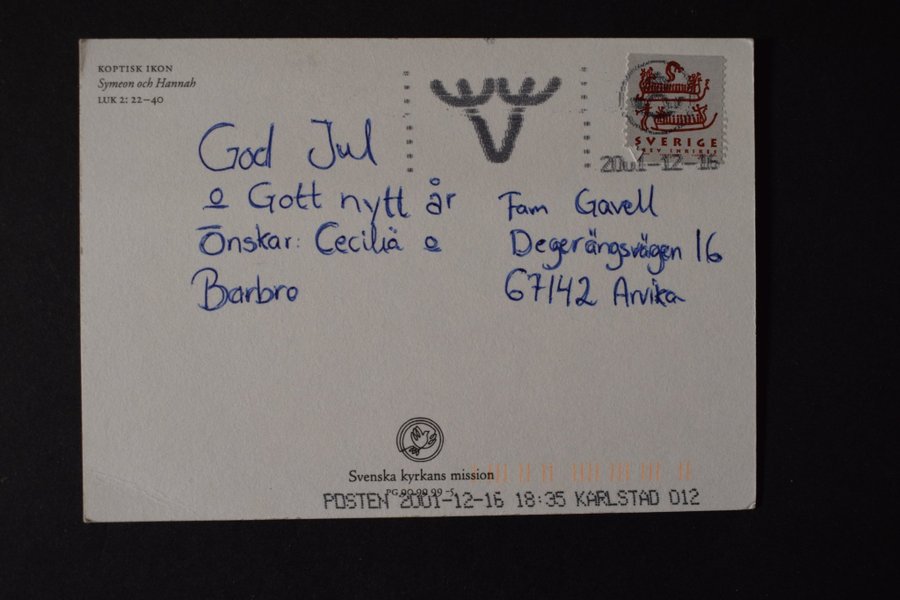 KOPTISK IKON
Symeon och Hannah
LUK 2: 22–40
SVERIGE
BREV INRIKES
2001-12-16
God Jul
o Gott nytt år
Önskar: Cecilia o
Barbro
Fam Gavell
Degerängsvägen 16
67142 Arvika
Svenska kyrkans mission
PG 90 00 99-5
POSTEN 2001-12-16 18:35 KARLSTAD 012